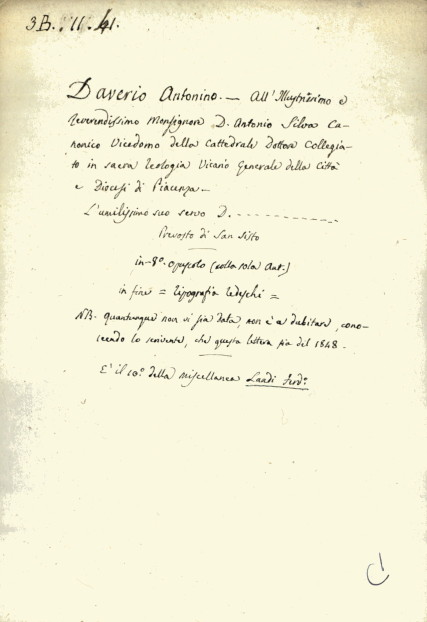 3B. . 11. 41.
Daverio Antonino. — All' Illustrissimo e
Reverendissimo Monsignore D. Antonio Silva Ca-
nonico Vicedomo della Cattedrale Dottore Collegia-
to in sacra Teologia Vicario Generale della Città
e Diocesi di Piacenza —
L'umilissimo suo servo D. - - - - - - - - - - -
Prevosto di San Sisto
in-8º. opuscolo (colla sola Ant.)
in fine = Tipografia Tedeschi =
NB. Quantunque non vi sia data, non è a dubitare, cono-
scendo lo scrivente, che questa lettera sia del 1848 -
E' il 10º. della Miscellanea Landi Ferdº.